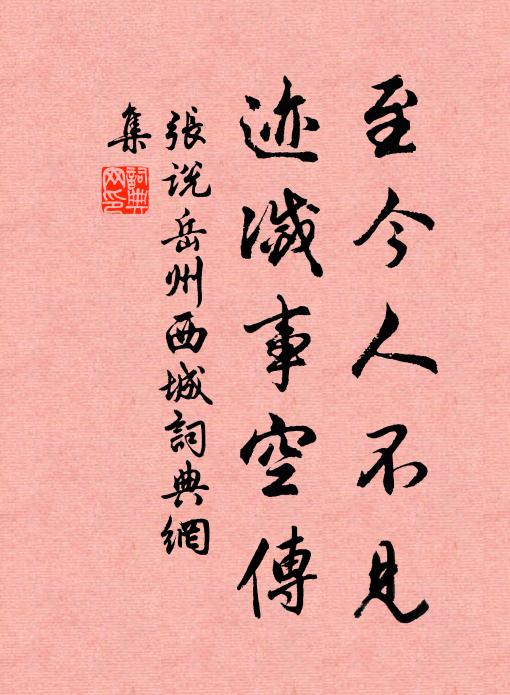 至今人不見
迹滅事空傳
張說岳州西城詞典網
集
詞典
网印